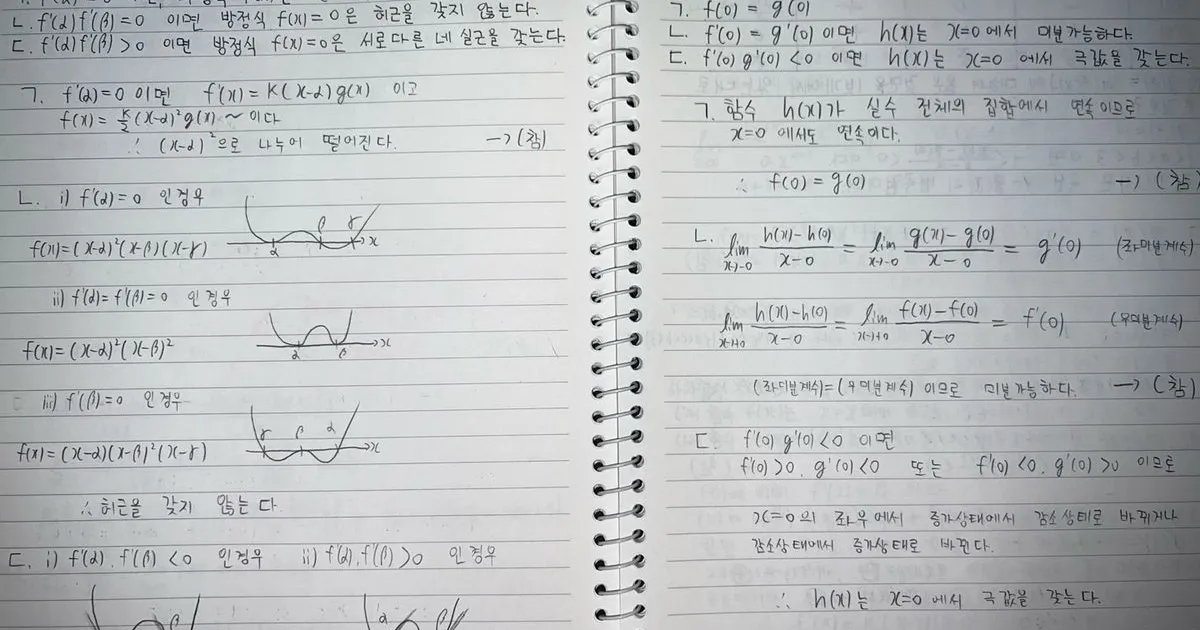 ㄴ. f'(α)f'(β)=0 이면 방정식 f(x)=0은 허근을 갖지 않는다.
ㄷ. f'(α)f'(β)>0 이면 방정식 f(x)=0은 서로다른 네 실근을 갖는다.
ㄱ. f'(α)=0 이면 f'(x)=k(x-α)g(x) 이고
f(x)= (x-α)²g(x)~ 이다
∴ (x-α)²으로 나누어 떨어진다. →(참)
ㄴ. i) f'(α)=0 인경우
β γ
α x
f(x)=(x-α)²(x-β)(x-γ)
ii) f'(α)=f'(β)=0 인경우
α β x
f(x)=(x-α)²(x-β)²
iii) f'(β)=0 인경우
γ β α x
f(x)=(x-α)(x-β)²(x-γ)
∴ 허근을 갖지 않는다
ㄷ. i) f'(α).f'(β)<0 인경우 ii) f'(α).f'(β)>0 인경우
β α β
ㄱ. f(0)=g(0)
ㄴ. f'(0)=g'(0)이면 h(x)는 x=0에서 미분가능하다.
ㄷ. f'(0)g'(0)<0 이면 h(x)는 x=0 에서 극값을 갖는다.
ㄱ. 함수 h(x)가 실수 전체의 집합에서 연속이므로
x=0 에서도 연속이다.
∴ f(0)=g(0) →(참)
ㄴ. lim x→-0 h(x)-h(0)/x-0 = lim x→-0 g(x)-g(0)/x-0 = g'(0) (좌미분계수)
lim x→+0 h(x)-h(0)/x-0 = lim x→+0 f(x)-f(0)/x-0 = f'(0) (우미분계수)
(좌미분계수)=(우미분계수) 이므로 미분가능하다. →(참)
ㄷ f'(0)g'(0)<0 이면
f'(0)>0. g'(0)<0 또는 f'(0)<0. g'(0)>0 이므로
x=0의 좌우에서 증가상태에서 감소상태로 바뀌거나
감소상태에서 증가상태로 바뀐다.
∴ h(x)는 x=0에서 극값을 갖는다.